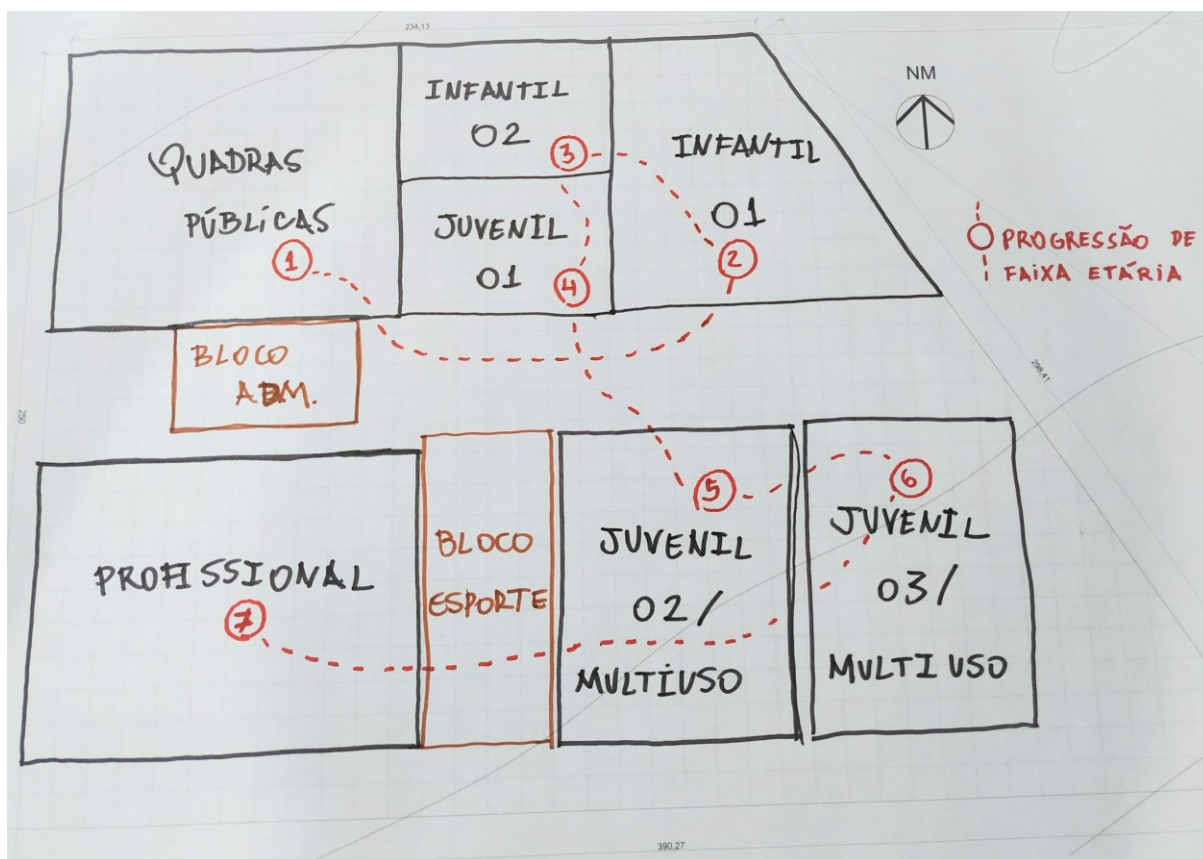 234,13
QUADRAS
PÚBLICAS
1
INFANTIL
02
3
JUVENIL
01
4
INFANTIL
01
2
NM
PROGRESSÃO DE
FAIXA ETÁRIA
BLOCO
ADM.
250
298,41
PROFISSIONAL
7
BLOCO
ESPORTE
5
JUVENIL
02/
MULTIUSO
6
JUVENIL
03/
MULTIUSO
390,27